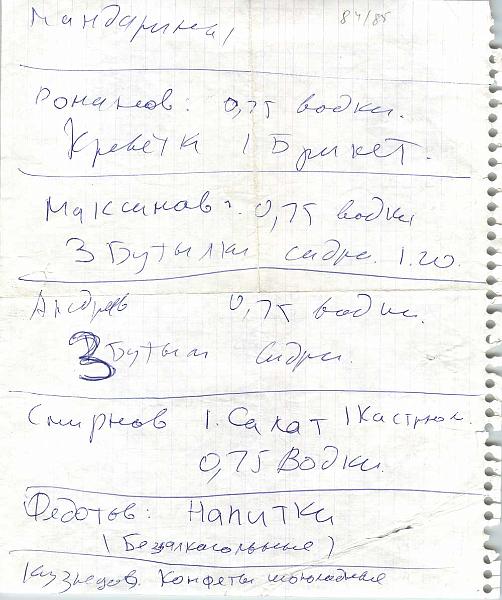 Мандарины
84/85
Романов: 0,75 водки.
Креветки 1 Брикет.
Максимов: 0,75 водки
3 Бутылки сидра. 1.20.
Андреев 0,75 водки.
3 Бутыл сидра.
Смирнов 1. Салат 1 Кастрюл.
0,75 Водки.
Федотов: Напитки
(Безалкогольные)
Кузнецов. Конфеты шоколадные